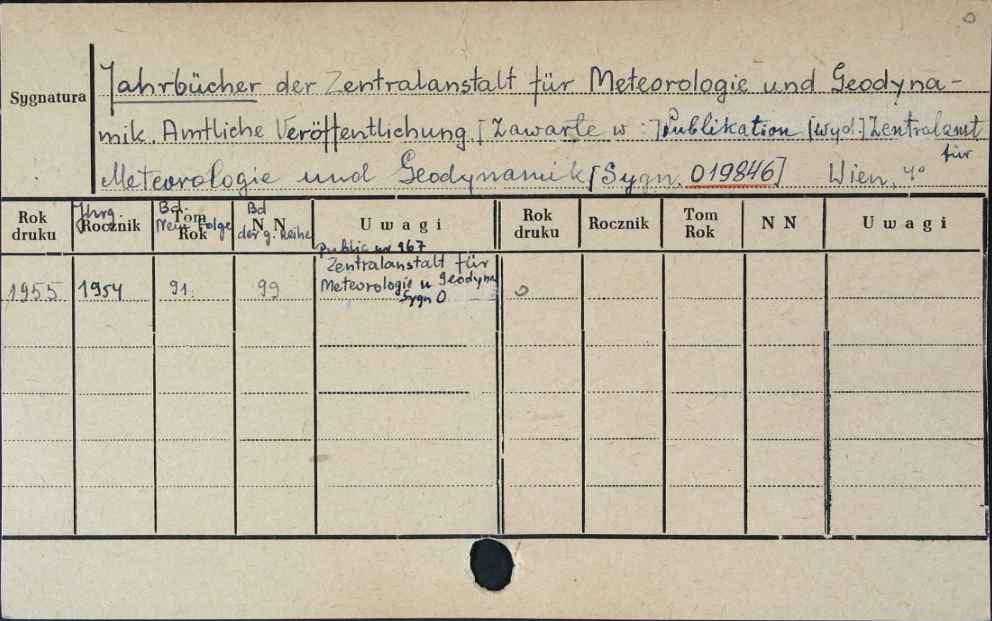 0
Sygnatura
Jahrbücher der Zentralanstalt für Meteorologie und Geodyna-
mik. Amtliche Veröffentlichung. [Zawarte w :] Publikation [Wyd.] Zentralamt
für
Meteorologie und Geodynamik [Sygn. 019846] Wien, 4°
Rok druku Jhrg. Rocznik Bd. Neue Folge Tom Rok Bd der g. Reihe N N Uwagi Rok druku Rocznik Tom Rok N N Uwagi
Public nr 167
Zentralanstalt für
1955 1954 91. 99 Meteorologie u Geodyna
Sygn 0